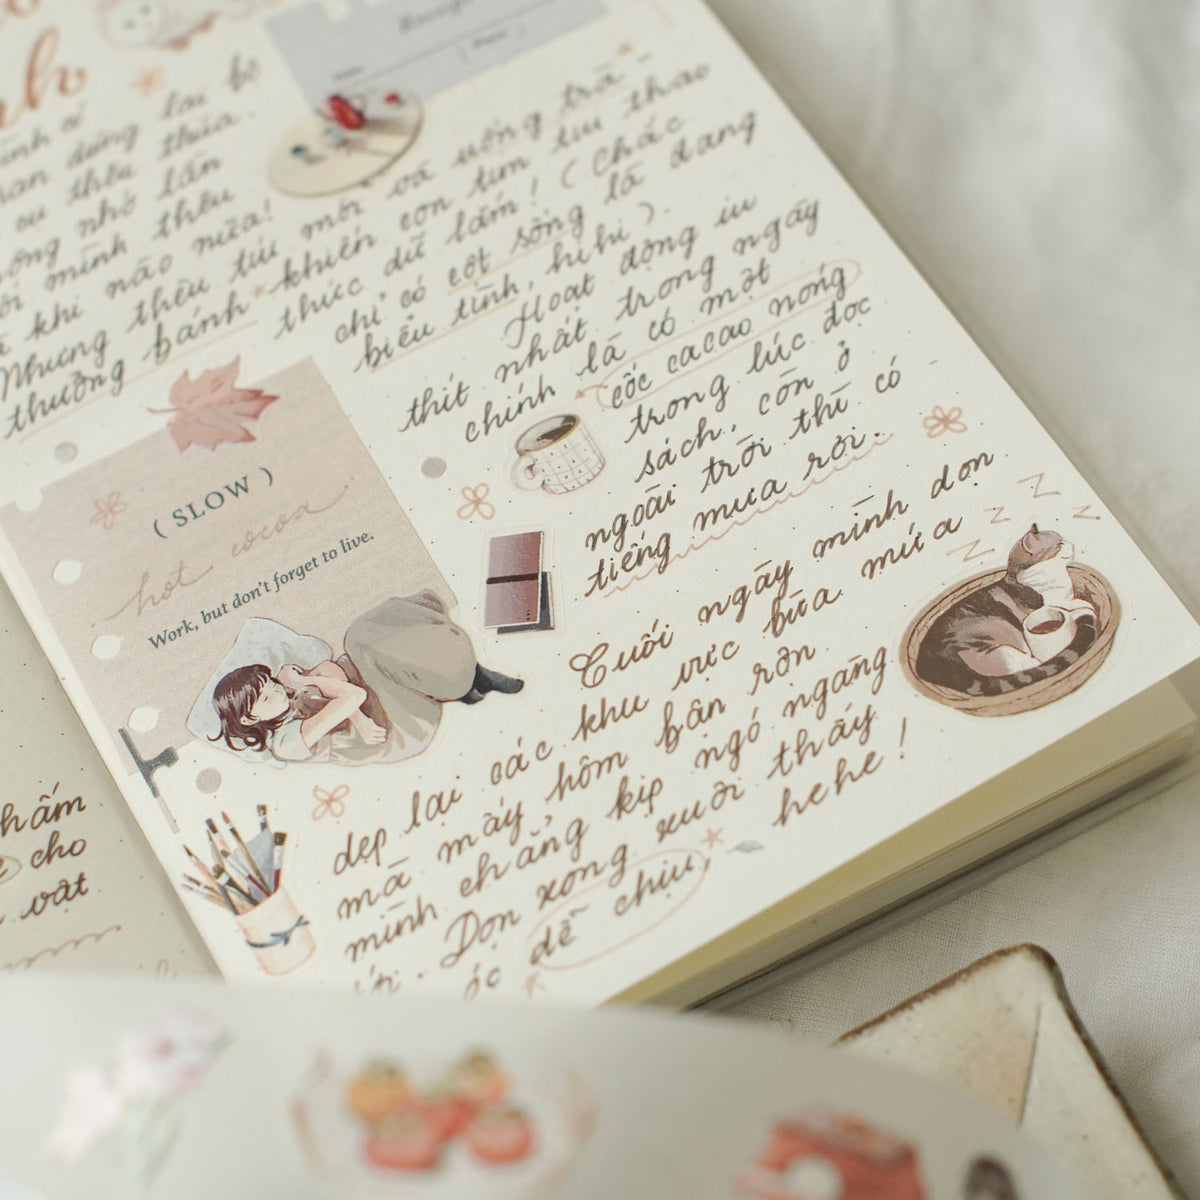 nh
Receipt
mình
dừng lại bộ
thêu thùa.
nhỏ lần
mình thêu
khi nào nữa!
Nhưng thêu túi mới và uống trà
thưởng bánh khiến con tim thao
thức dữ lắm! (Chắc
chỉ có cột sống là đang
biểu tình, hihi).
Hoạt động iu
thít nhất trong ngày
chính là có một
cốc cacao nóng
trong lúc đọc
sách, còn ở
ngoài trời thì có
tiếng mưa rơi.
(SLOW)
hot cocoa
Work, but don't forget to live.
Cuối ngày mình dọn
dẹp lại các khu vực bừa mứa
mà mấy hôm bận rộn
mình chẳng kịp ngó ngàng
ới. Dọn xong xuôi thấy
óc dễ chịu, hehe!
z z z z
hấm
cho
vật